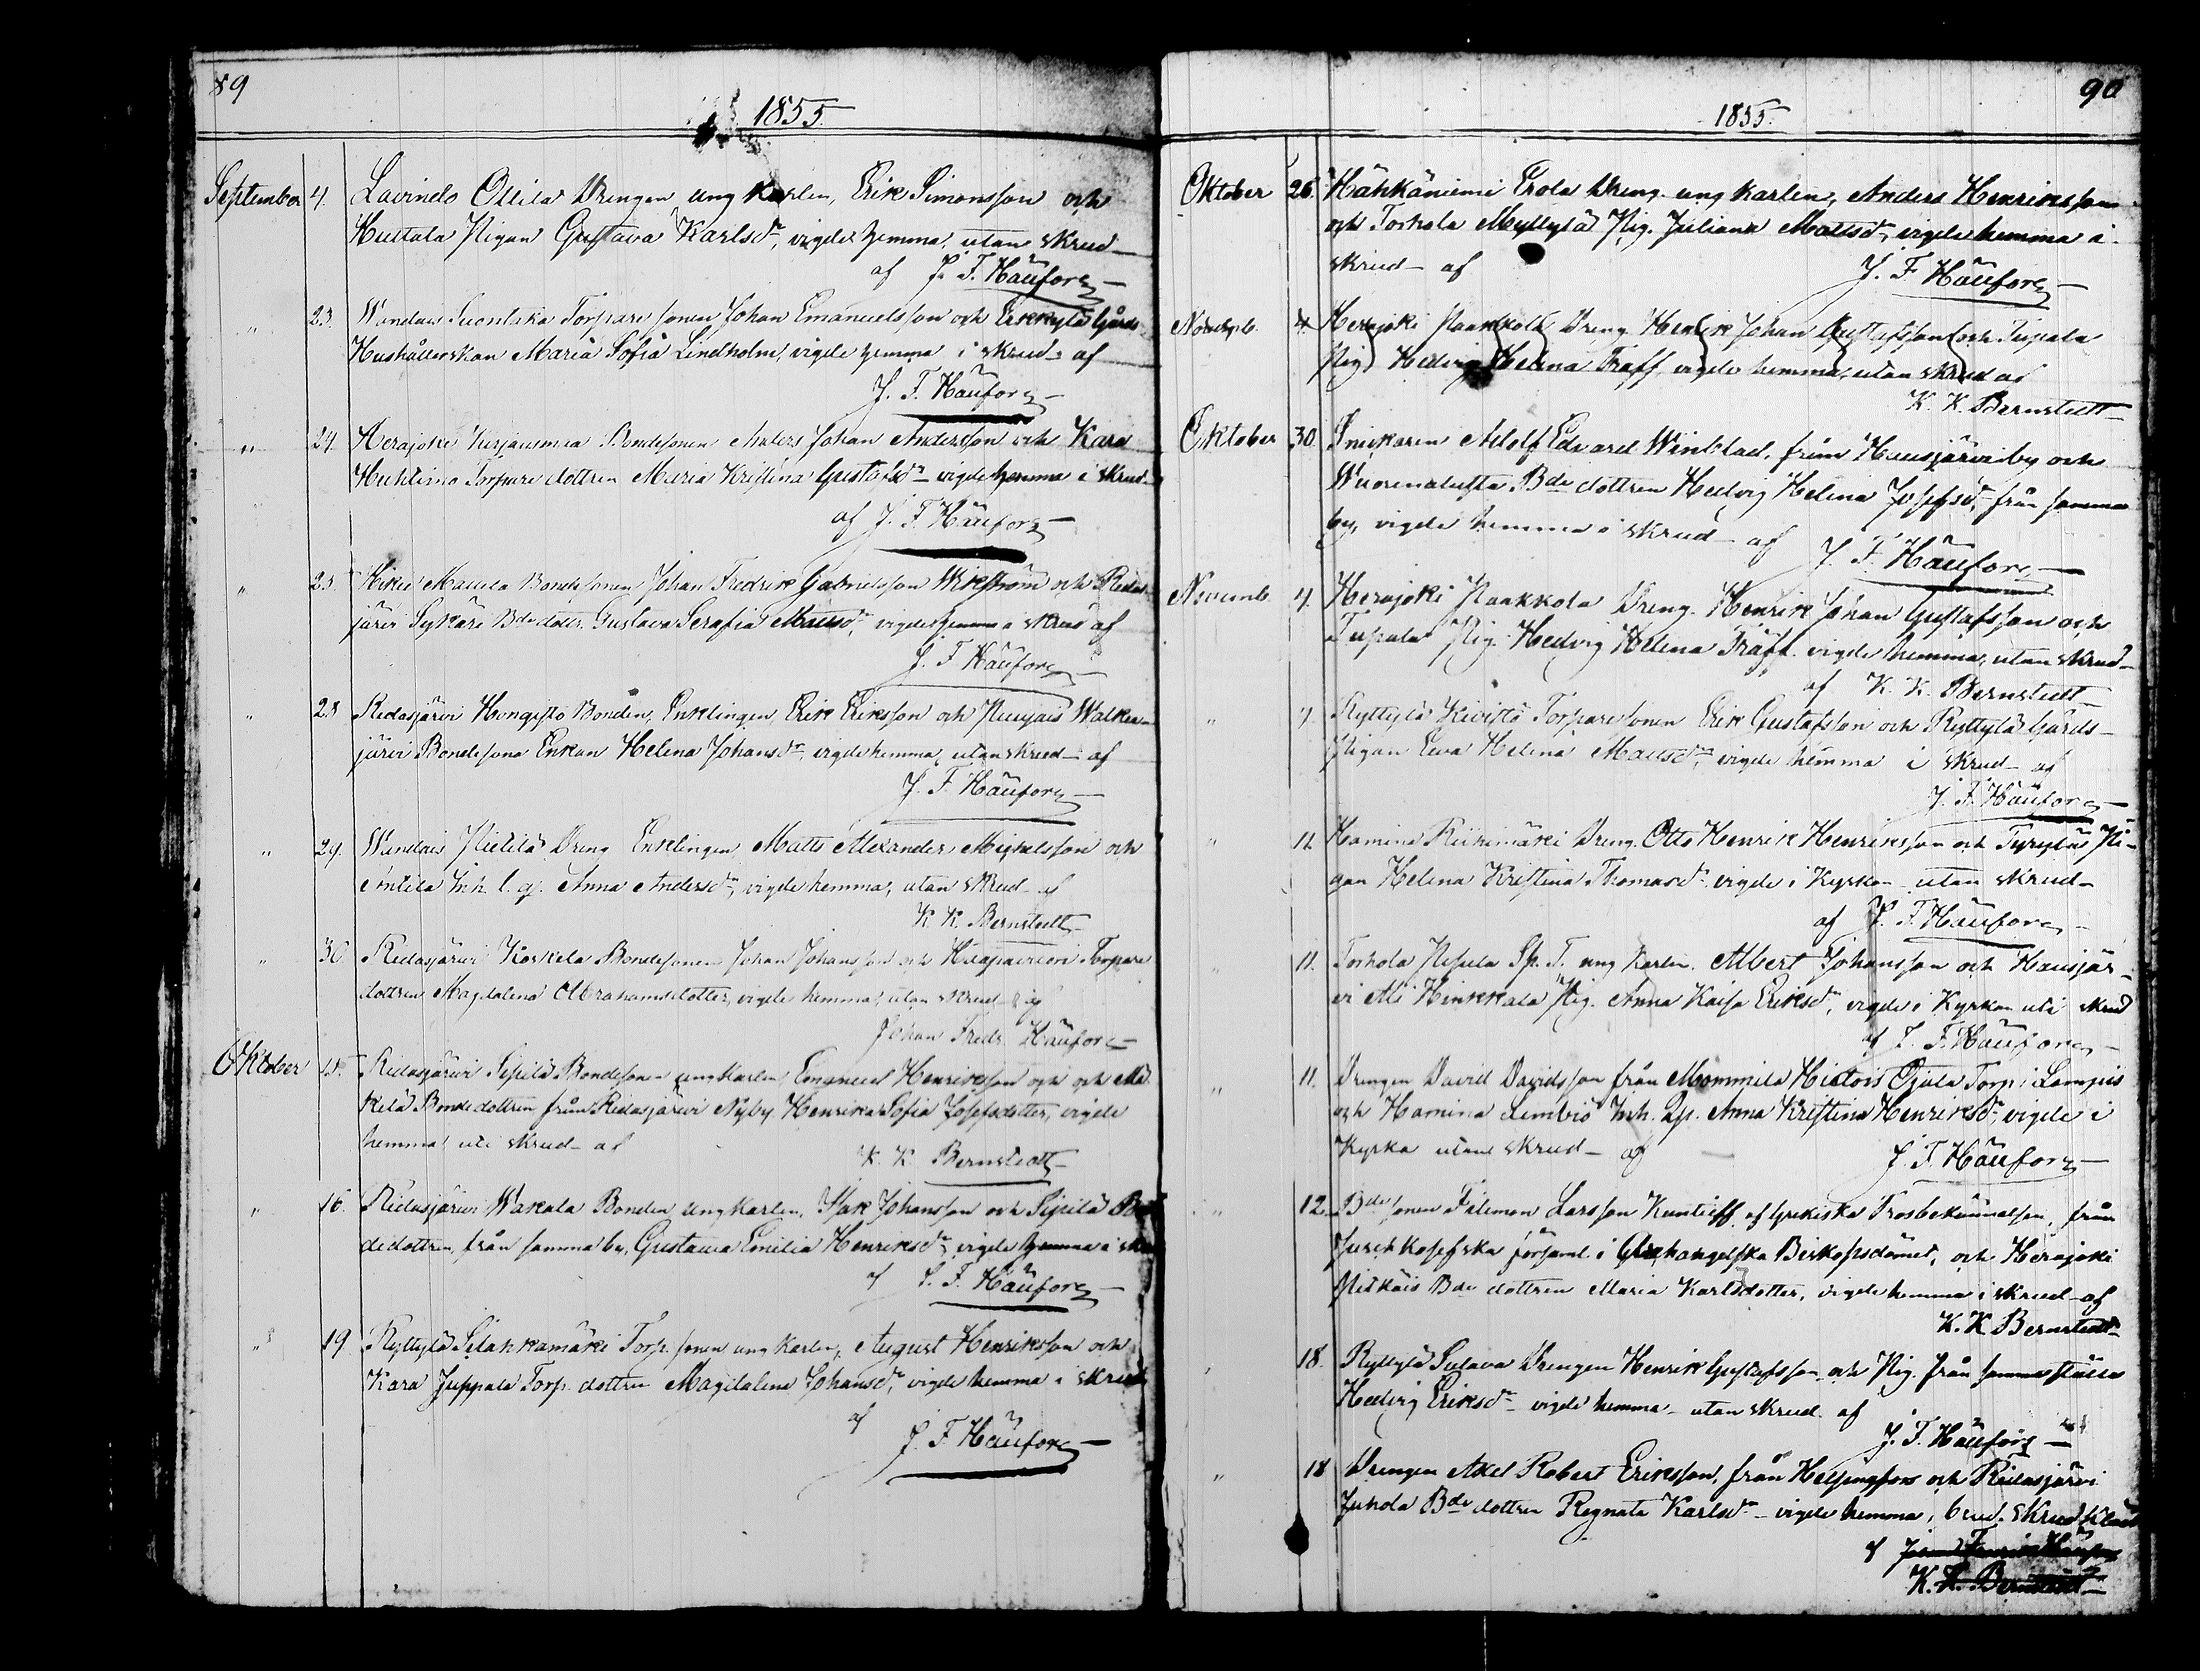 89
1855.
September 4. Lavindo Ollila Drengen ung karlen, Erik Simonsson och
Huttala Pigan Gustava Karlsdr, vigde hemma, utan skrud
af J. F. Häufore
" 23. Wandais Suontaka Torpare sonen Johan Emanuelsson och Erkkylä Gårds
Hushållerskan Maria Sofia Lindholm, vigde hemma i skrud af
J. F. Häufore
" 24. Herajoki Bondesonen Anders Johan Andersson och Kara
Huhtimo Torpare dottren Maria Kristina Gustafsdr vigde hemma i skrud
af J. F. Häufore
" 25. Hikiä Maunula Bondesonen Johan Fredrik Gabrielsson Wikström och Ridas-
järvi Sykäri Bde dottr. Gustava Serafia Mattsdr, vigde hemma i skrud af
J. F. Häufore
" 28 Ridasjärvi Hongisto Bonden, Enklingen, Erik Eriksson och Nurjais Walkea-
järvi Bondesons Enkan Helena Johansdr, vigde hemma, utan skrud af
J. F. Häufore
" 29. Wandais Pietilä Dreng Enklingen, Matts Alexander Michelsson och
Anttila Inh. l. q. Anna Andersdr, vigde hemma, utan skrud af
K. K. Bernstedt
" 30 Ridasjärvi Koskela Bondesonen Johan Johansson och Torpare
dottren Magdalena Abrahamsdotter, vigde hemma, utan skrud af
Johan Fredr. Häufore
Oktober 15. Ridasjärvi Sipilä Bondesonen ungkarlen Emanuel Henriksson och och Mä
kelä Bondedottren från Ridasjärvi Nyby Henrika Sofia Josefsdotter, vigde
hemma, uti skrud af
K. K. Bernstedt
" 16. Ridasjärvi Wakala Bonden ungkarlen, Isak Johansson och Sipilä Bon
dedottren från samma by, Gustawa Emilia Henriksdr, vigde hemma i skrud
af J. F. Häufore
" 19 Ryttylä Selänkamäki Torp. sonen ung karlen, August Henriksson och
Kara Juppala Torp. dottren Magdalena Johansdr, vigde hemma i skrud
af
J. F. Häufore
90
1855.
Oktober 26. Hähkäniemi Erola Dreng. ung karlen, Anders Henriksson
och Torhola Myllylä Pig. Juliana Mattsdr, vigde hemma i
skrud af J. F. Häufore
Novemb. 4. Herajoki Paakkola Dreng. Henrik Johan Gustafsson och Tupala
Pig. Hedvig Helena Träff vigde hemma, utan skrud af
K. K. Bernstedt
Oktober 30. Snickaren Adolf Edvard Winblad, från Hausjärvi by och
Wuorenalusta Bde dottren Hedvig Helena Josefsdr, från samma
by, vigde hemma i skrud af J. F. Häufore
Novemb. 4. Herajoki Paakkola Dreng. Henrik Johan Gustafsson och
Tupala Pig. Hedvig Helena Träff. vigde hemma, utan skrud
af K. K. Bernstedt
" 4. Ryttylä Kivistö Torparesonen Erik Gustafsson och Ryttylä Gårds-
Pigan Eva Helena Mattsdr, vigde hemma i skrud af
J. F. Häufore
" 11. Hamina Riihimäki Dreng. Otto Henrik Henriksson och Pi-
gan Helena Kristina Thomasdr vigde i Kyrkan utan skrud
af J. F. Häufore
" 11. Torhola Sp. T. ung karlen. Albert Johansson och Hausjär-
vi Ali Hinkkala Pig. Anna Kaisa Eriksdr, vigde i Kyrkan uti skrud
af J. F. Häufore
" 11. Drengen David Davidsson från Mommila Hietois Ojala Torp i Lampis
och Hamina Lembiö Inh. Qp. Anna Kristina Henriksdr, vigde i
Kyrka utan skrud af J. F. Häufore
" 12. Bde sonen Filemon Larsson af Grekiska Trosbekännelsen, från
församl. i Archangelska Biskopsdömet, och Herajoki
Bde dottren Maria Karlsdotter, vigde hemma i skrud af
K. K. Bernstedt
18. Ryttylä Sulava Drengen Henrik Gustafsson och Pig. från samma ställe
Hedvig Eriksdr vigde hemma utan skrud. af
J. F. Häufore
" 18 Drengen Axel Robert Eriksson, från Helsingfors och Ridasjärvi
Juhola Bde dottren Regnata Karlsdr vigde hemma, brud. skrud klädd
af
K. K. Bernstedt